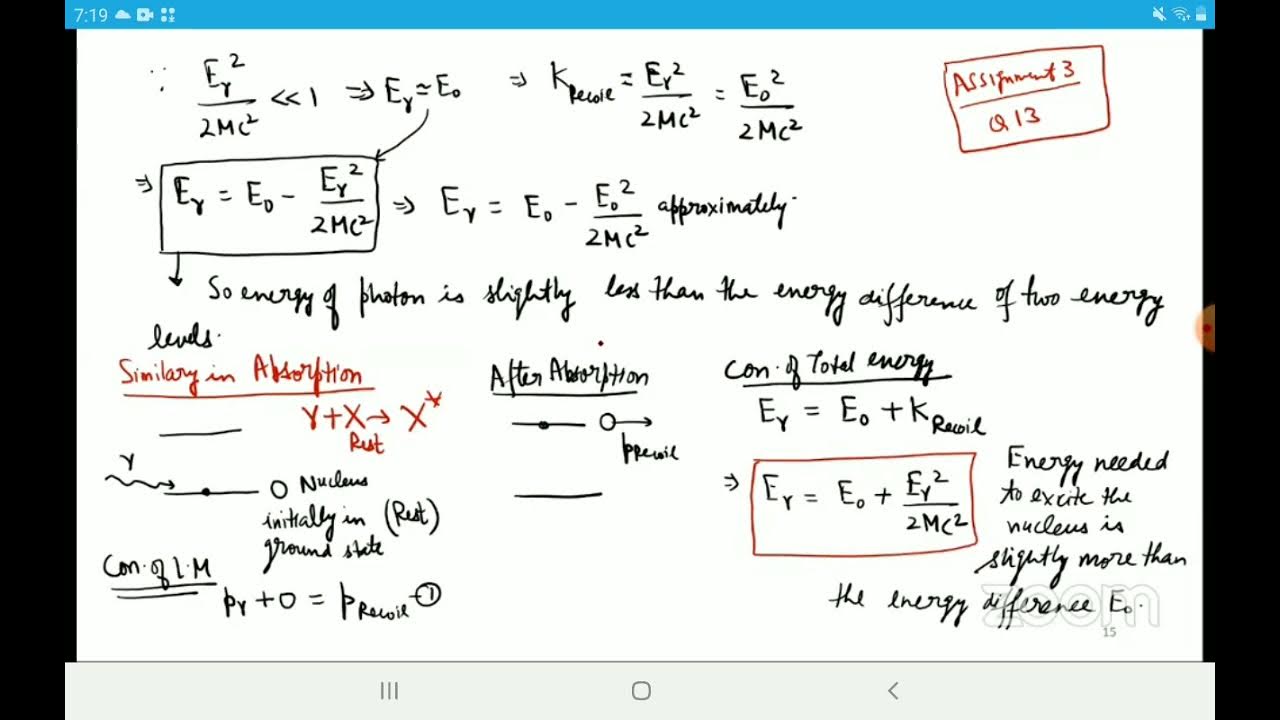 7:19
∵ Eγ²/2Mc² << 1 ⇒ Eγ ≈ E₀ ⇒ K_Recoil = Eγ²/2Mc² = E₀²/2Mc²
Assignment 3
Q 13
⇒ Eγ = E₀ - Eγ²/2Mc² ⇒ Eγ = E₀ - E₀²/2Mc² approximately.
So energy of photon is slightly less than the energy difference of two energy
levels.
Similary in Absorption
γ + X → X*
Rest
γ
Nucleus
initially in (Rest)
ground state
Con. of L.M
pγ + 0 = p_Recoil -①
After Absorption
p_Recoil
Con. of Total energy
Eγ = E₀ + K_Recoil
⇒ Eγ = E₀ + Eγ²/2Mc²
Energy needed
to excite the
nucleus is
slightly more than
the energy difference E₀.
zoom
15